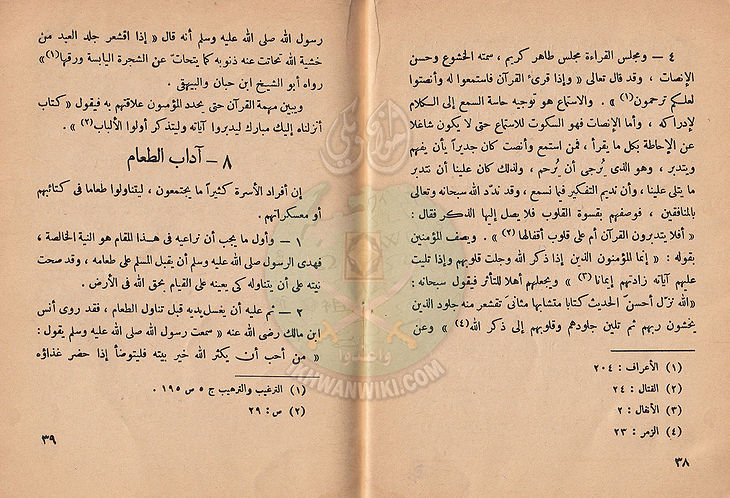 ٤ — ومجلس القراءة مجلس طاهر كريم ، سمته الخشوع وحسن
الإنصات ، وقد قال تعالى « وإذا قرىء القرآن فاستمعوا له وأنصتوا
لعلكم ترحمون (١) » . والاستماع هو توجيه حاسة السمع إلى الكلام
لإدراكه ، وأما الإنصات فهو السكوت للاستماع حتى لا يكون شاغلا
عن الإحاطة بكل ما يقرأ ، فمن استمع وأنصت كان جديراً بأن يفهم
ويتدبر ، وهو الذى يُرجى أن يُرحم ، ولذلك كان علينا أن نتدبر
ما يتلى علينا ، وأن نديم التفكير فيما نسمع ، وقد ندّد الله سبحانه وتعالى
بالمنافقين ، فوصفهم بقسوة القلوب فلا يصل إليها الذكر فقال :
« أفلا يتدبرون القرآن أم على قلوب أقفالها (٢) » . ويصف المؤمنين
بقوله : « إنما المؤمنون الذين إذا ذكر الله وجلت قلوبهم وإذا تليت
عليهم آياته زادتهم إيمانا (٣) » ويجعلهم أهلا للتأثر فيقول سبحانه :
« الله نزّل أحسنَ الحديث كتابا متشابها مثانىَ تقشعر منه جلود الذين
يخشون ربهم ثم تلين جلودهم وقلوبهم إلى ذكر الله (٤) » وعن
(١) الأعراف : ٢٠٤
(٢) القتال : ٢٤
(٣) الأنفال : ٢
(٤) الزمر : ٢٣
٣٨
رسول الله صلى الله عليه وسلم أنه قال « إذا اقشعر جلد العبد من
خشية الله تحاتت عنه ذنوبه كما يتحاتّ عن الشجرة اليابسة ورقها (١) »
رواه أبو الشيخ ابن حبان والبيهقى .
ويبين مهمة القرآن حتى يحدد المؤمنون علاقتهم به فيقول « كتاب
أنزلناه إليك مبارك ليدبروا آياته وليتذكر أولوا الألباب (٢) » .
٨ — آداب الطعام
إن أفراد الأسرة كثيراً ما يجتمعون ، ليتناولوا طعاما فى كتائبهم
أو معسكراتهم .
١ — وأول ما يجب أن نراعيه فى هذا المقام هو النية الخالصة ،
فهدى الرسول صلى الله عليه وسلم أن يقبل المسلم على طعامه ، وقد صحت
نيته على أن يتناوله كى يعينه على القيام بحق الله فى الأرض .
٢ — ثم عليه أن يغسل يديه قبل تناول الطعام ، فقد روى أنس
ابن مالك رضى الله عنه « سمعت رسول الله صلى الله عليه وسلم يقول :
« من أحب أن يكثر الله خير بيته فليتوضأ إذا حضر غذاؤه
(١) الترغيب والترهيب ج ٥ ص ١٩٥ .
(٢) ص : ٢٩
٣٩
وأعدوا
IKHWANWIKI.COM